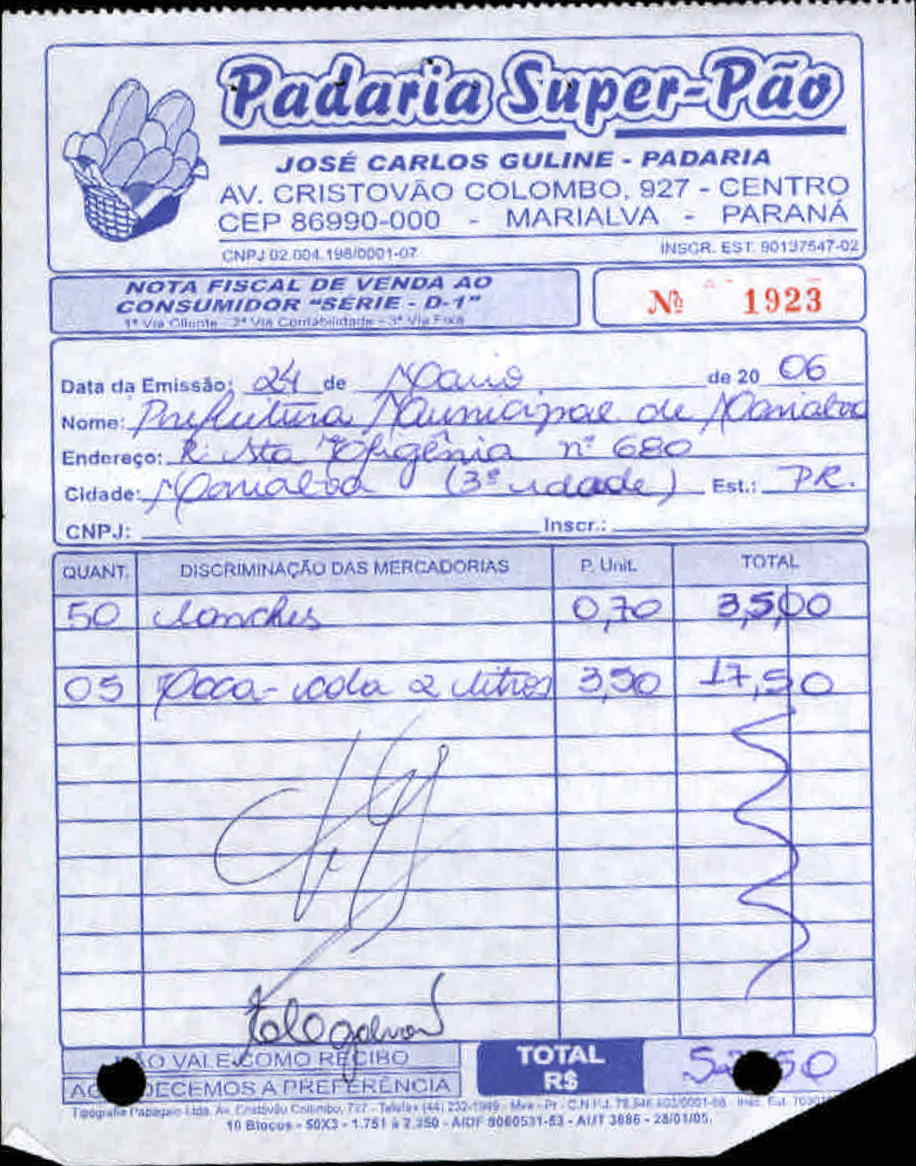 Padaria Super-Pão
JOSÉ CARLOS GULINE - PADARIA
AV. CRISTOVÃO COLOMBO, 927 - CENTRO
CEP 86990-000 - MARIALVA - PARANÁ
CNPJ 02.004.198/0001-07 INSCR. EST. 90137547-02
NOTA FISCAL DE VENDA AO
CONSUMIDOR "SÉRIE - D-1"
1ª Via Cliente - 2ª Via Contabilidade - 3ª Via Fixa
Nº 1923
Data da Emissão: 24 de Maio de 20 06
Nome: Prefeitura Municipal de Marialva
Endereço: R. Sta Efigênia nº 680
Cidade: Marialva (3ª idade) Est.: PR.
CNPJ: Inscr.:
QUANT. DISCRIMINAÇÃO DAS MERCADORIAS P. Unit. TOTAL
50 lanches 0,70 35,00
05 Coca-cola 2 litros 3,50 17,50
ÃO VALE COMO RECIBO
DECEMOS A PREFERÊNCIA
TOTAL
R$
50
Tipografia Papagaio Ltda. Av. Cristóvão Colombo, - Telefax (44) 232-1949 - Mva - Pr - C.N.P.J.
10 Blocos - 50X3 - 1.751 à 2.250 - AIDF 9060531-53 - AUT 3686 - 28/01/05.